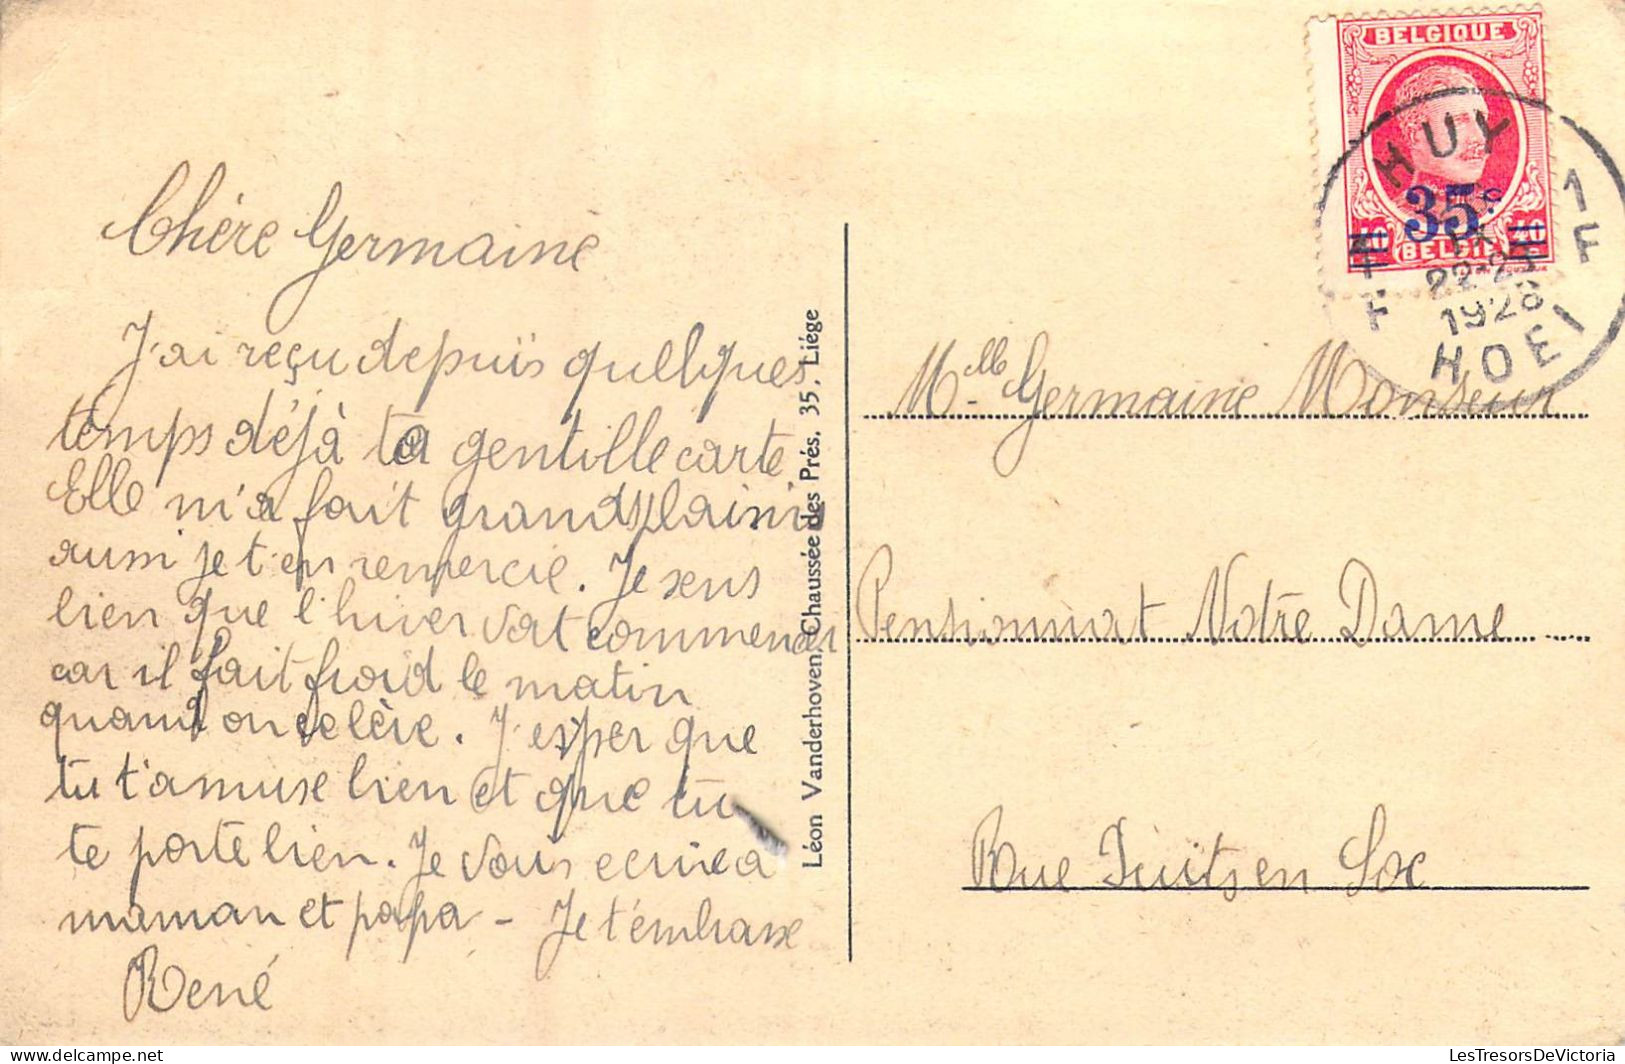 Chère Germaine
J'ai reçu depuis quelques
temps déjà ta gentille carte
Elle m'a fait grand plaisir
aussi je t'en remercie. Je sens
bien que l'hiver vat commencer
car il fait froid le matin
quand on se lève. J'esper que
tu t'amuse bien et que tu
te porte bien. Je vous
maman et papa - Je t'embrasse
René
Léon Vanderhoven, Chaussée des Prés, 35, Liége
BELGIQUE
35c
40 40
BELGIË
HUY 1
22-23
1928
F F
HOEI
Mlle Germaine Monseur
Pensionnat Notre Dame
Rue Puits en Soc
LesTresorsDeVictoria @ DelCampe.net